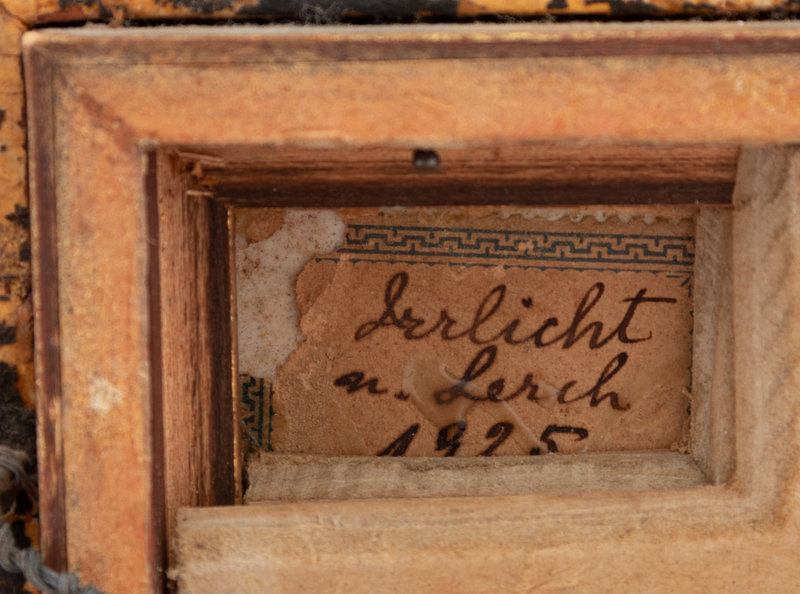 Irrlicht
n. Lerch
1925